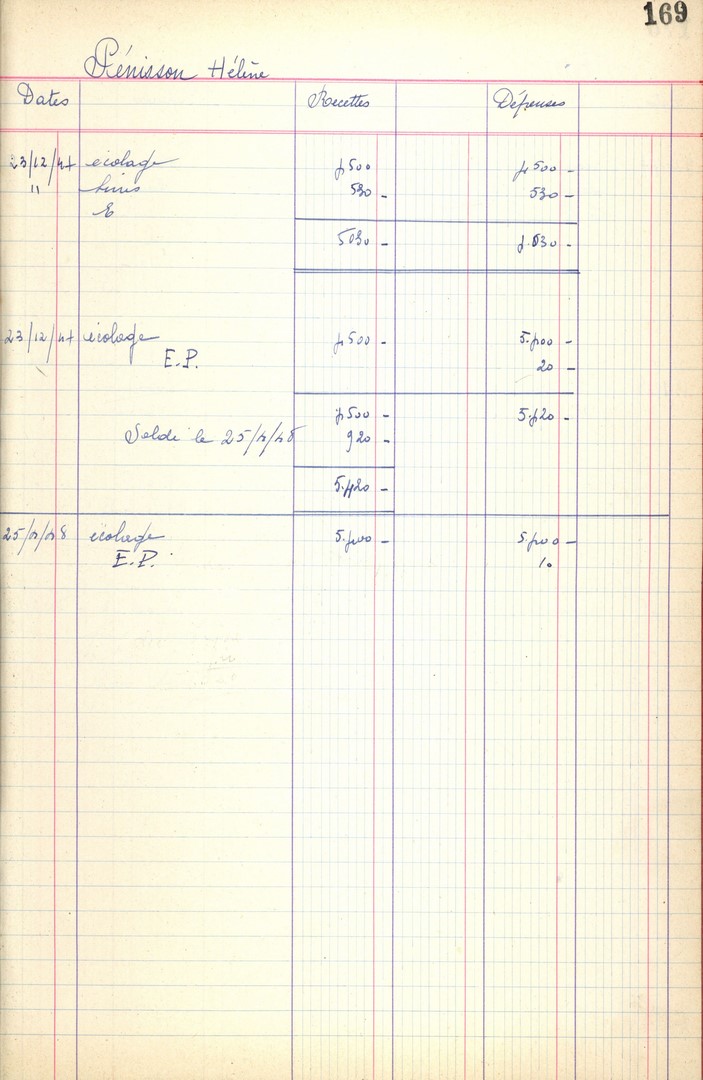 169
Pénisson Hélène
Dates Recettes Dépenses
23/12/47 écolage 4500 4500 -
" livres 530 - 530 -
5030 - 5.030 -
23/12/47 écolage 4500 - 5.400 -
E.P. 20 -
4500 - 5.420 -
Soldé le 25/4/48 920 -
5.420 -
25/4/48 écolage 5.400 - 5.400 -
E.P. 10